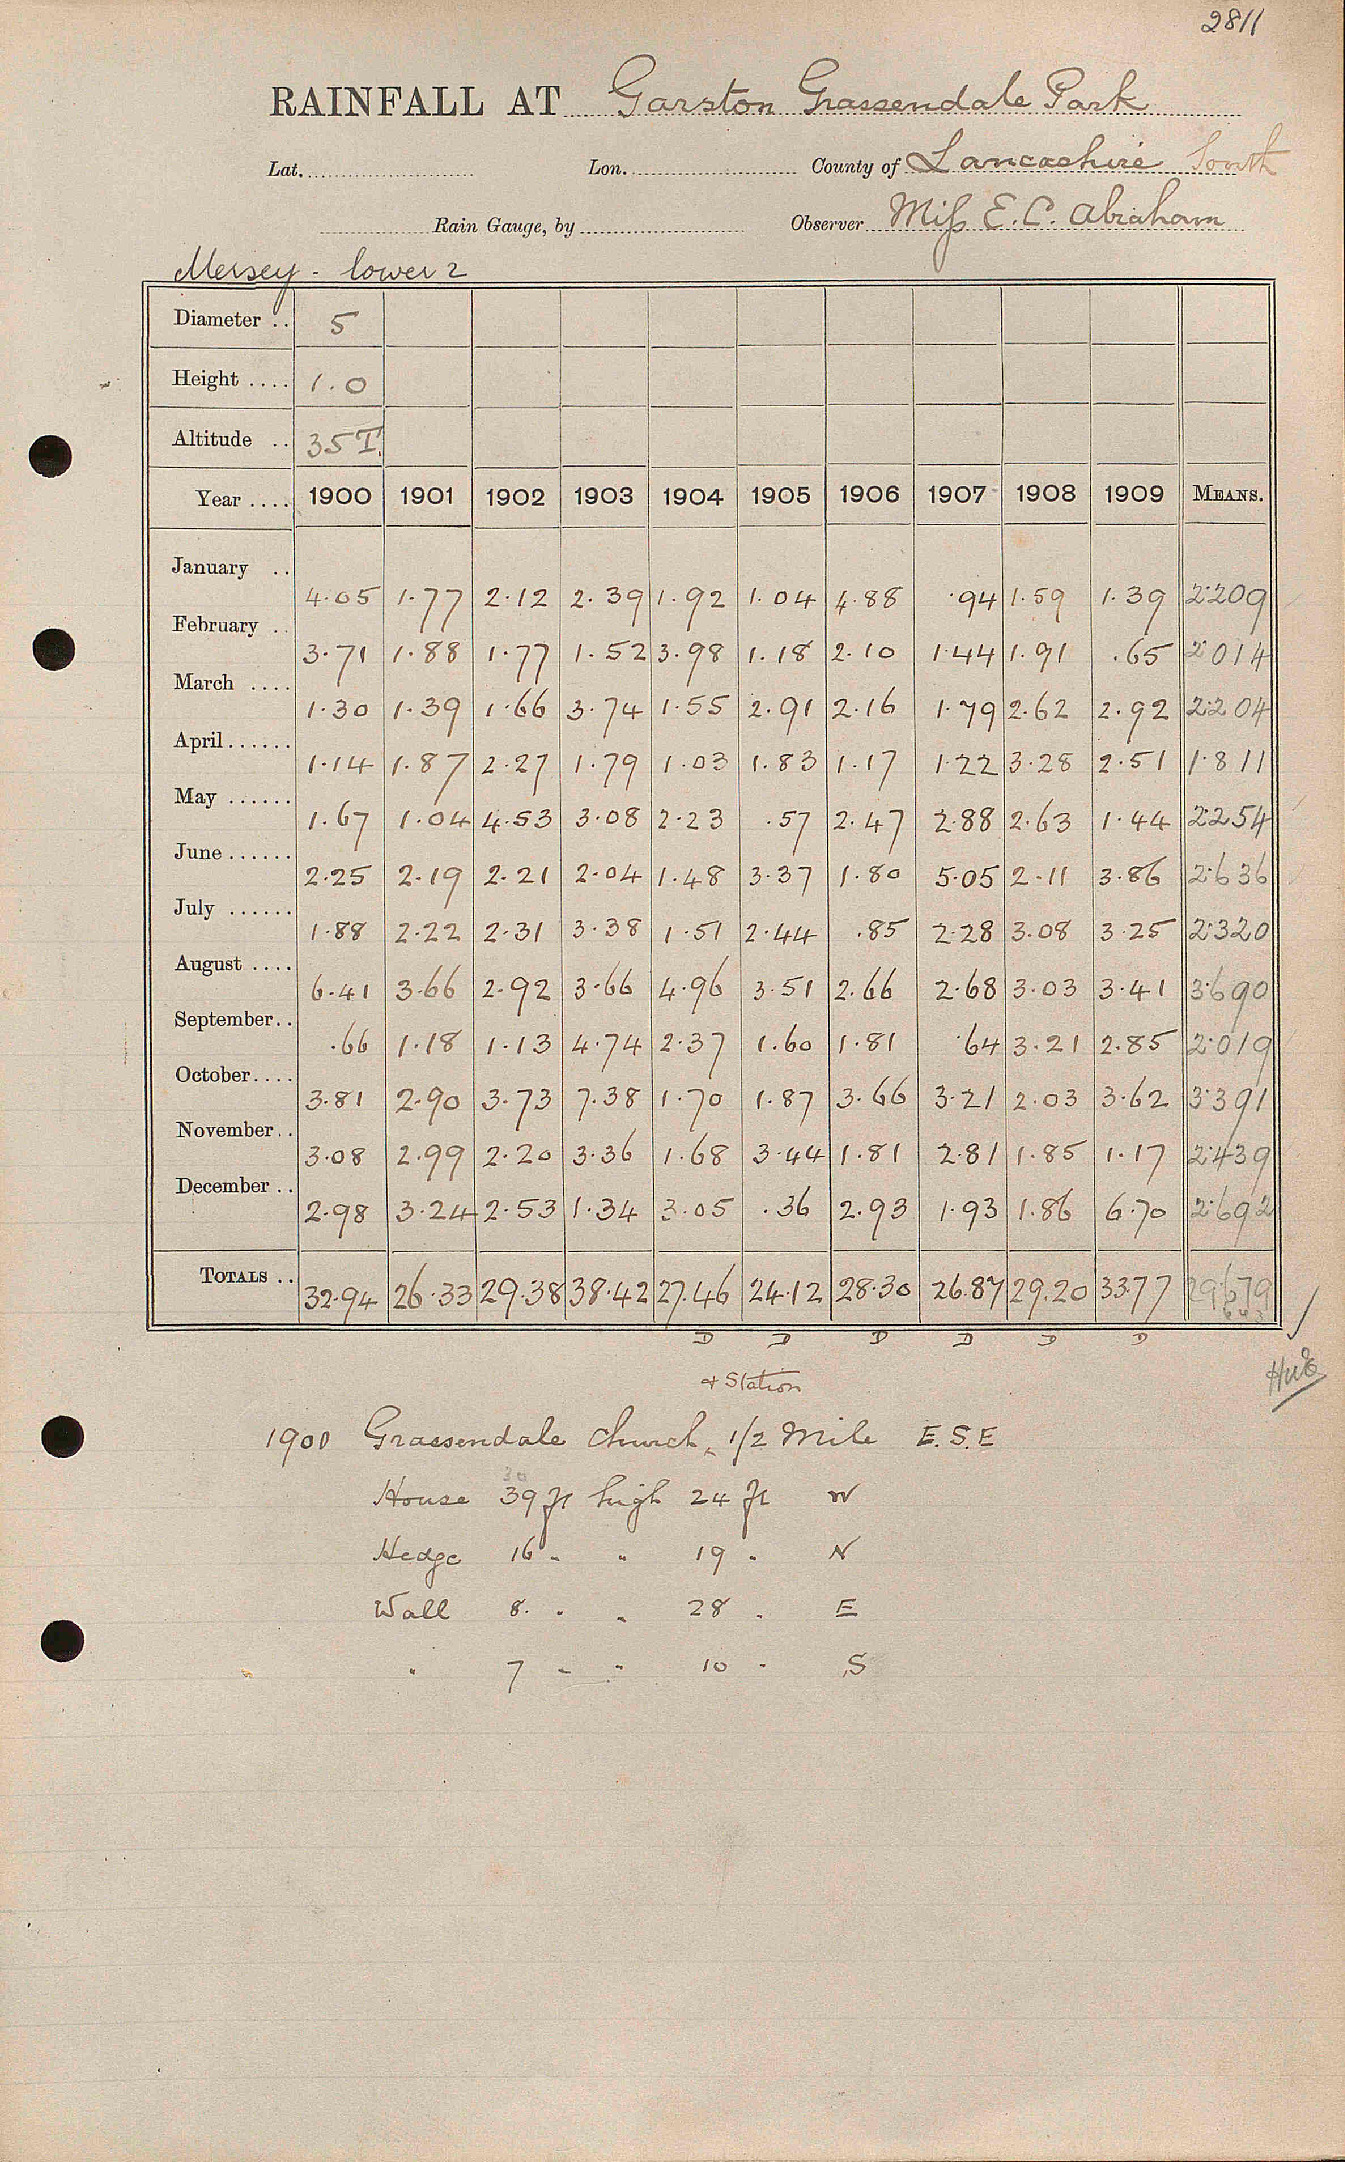 2811
RAINFALL AT Garston Grassendale Park
Lat. Lon. County of Lancashire South
Rain Gauge, by Observer Miss E. C. Abraham
Mersey - lower 2
Diameter .. 5
Height .... 1.0
Altitude .. 35 T.
Year .... 1900 1901 1902 1903 1904 1905 1906 1907 1908 1909 MEANS.
January .. 4.05 1.77 2.12 2.39 1.92 1.04 4.88 .94 1.59 1.39 2.209
February .. 3.71 1.88 1.77 1.52 3.98 1.18 2.10 1.44 1.91 .65 2.014
March .... 1.30 1.39 1.66 3.74 1.55 2.91 2.16 1.79 2.62 2.92 2.204
April...... 1.14 1.87 2.27 1.79 1.03 1.83 1.17 1.22 3.28 2.51 1.811
May ...... 1.67 1.04 4.53 3.08 2.23 .57 2.47 2.88 2.63 1.44 2.254
June...... 2.25 2.19 2.21 2.04 1.48 3.37 1.80 5.05 2.11 3.86 2.636
July ...... 1.88 2.22 2.31 3.38 1.51 2.44 .85 2.28 3.08 3.25 2.320
August .... 6.41 3.66 2.92 3.66 4.96 3.51 2.66 2.68 3.03 3.41 3.690
September.. .66 1.18 1.13 4.74 2.37 1.60 1.81 .64 3.21 2.85 2.019
October.... 3.81 2.90 3.73 7.38 1.70 1.87 3.66 3.21 2.03 3.62 3.391
November.. 3.08 2.99 2.20 3.36 1.68 3.44 1.81 2.81 1.85 1.17 2.439
December .. 2.98 3.24 2.53 1.34 3.05 .36 2.93 1.93 1.86 6.70 2.692
TOTALS .. 32.94 26.33 29.38 38.42 27.46 24.12 28.30 26.87 29.20 33.77 29.679
D D D D D D
+ Station
1900 Grassendale Church, 1/2 Mile E.S.E
30
House 39 ft high 24 ft W
Hedge 16 " " 19 " N
Wall 8. " " 28 " E
" 7 " " 10 " S